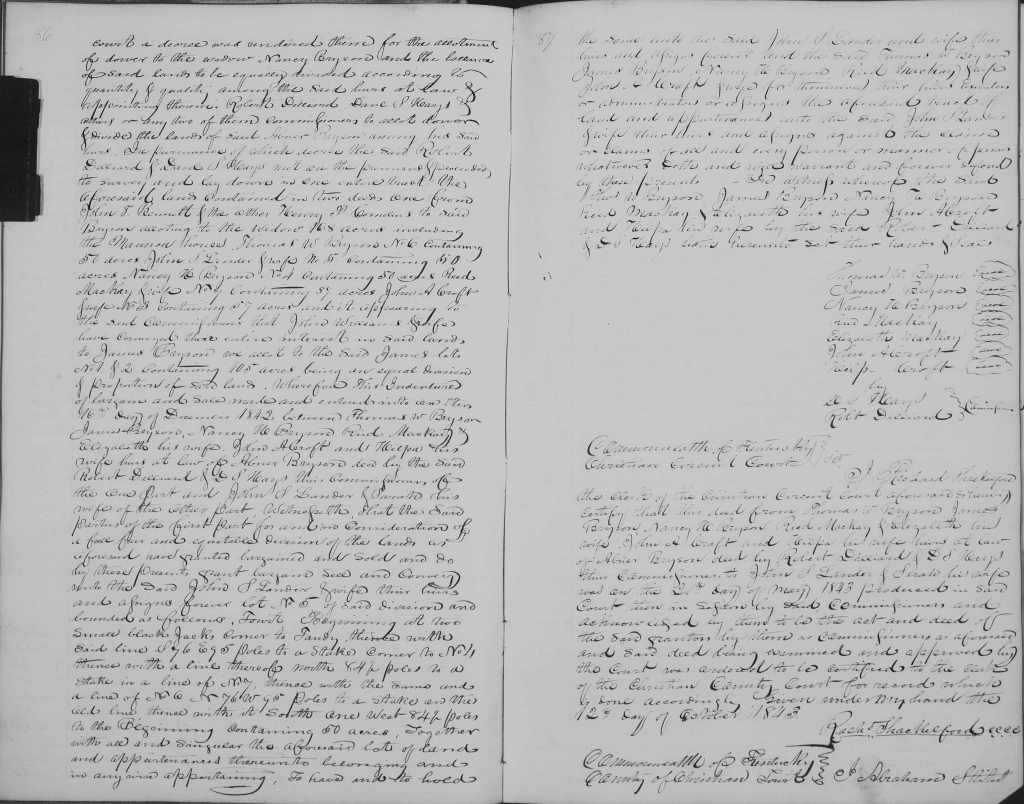 86
court a decree was rendered them for the allotment
of dower to the widow Nancy Bryson and the ballance
of said lands to be equally divided according to
quantity & quality among the said heirs at law &
appointing thereon Robert Dillard Dane S Hays &
others or any two of them commissioners to allot dower
& divide the lands of said Abner Bryson among his said
heirs. In pursuance of which decree the said Robert
Dillard & Dane S Hays met on the premises & proceeded
to survey and lay down in one entire tract the
aforesaid land contained in two deeds one from
John T. & the other Henry to said
Bryson to the widow 168 acres including
the Mansion house, Thomas W Bryson No 6 Containing
50 acres John S Lander & wife No 5 containing 50
acres Nancy H Bryson No 4 Containing 50 acres Reid
Mackay & wife Containing 57 acres John A Croft
& wife No 3 containing 57 acres and it appearing to
the said Commissioners that John Williams & wife
have conveyed there entire interest in said lands
to James Bryson we allot to the said James lots
No 1 & 2 Containing 105 acres being an equal division
& proportion of said land. Wherefore this Indenture
of bargain and sale made and entered into on this
16th Day of December 1842 between Thomas W Bryson
James Bryson, Nancy H Bryson Reid Mackay &
Elizabeth his wife, John A Croft and his
wife heirs at law of Abner Bryson decd by the said
Robert Dillard & D S Hays their Commissioners of
the one part and John S Lander & Sarah his
wife of the other part, Witnesseth, that the said
parties of the first part for and in Consideration of
a fee fair and equitable division of the lands as
aforesaid have granted bargained and sold and do
by these presents grant bargain sell and convey
unto the said John S Lander & wife their heirs
and assigns forever lot No 5 of said division and
bounded as follows, Towit Beginning at two
small black Jacks corner to Tandy, thence with
said line S 76 E 95 poles to a Stake Corner to No 4
thence with a line thereof north 84½ poles to a
stake in a line of No 7, thence with the same and
a line of No 6 N 76 W 95 Poles to a stake in the
old line thence with it South one West 84½ poles
to the Beginning Containing 50 acres, Together
with all and singular the aforesaid lot of land
and appurtenances thereunto belonging and
in anywise appertaining, To have and to hold
87
the same unto the said John S Lander and wife their
heirs and assigns forever and the said Thomas W Bryson
James Bryson, Nancy H Bryson Reid Mackay & wife
John A Croft & wife for themselves their heirs executors
or administrators or assigns the aforesaid tract of
land and appurtenances unto the said John S Lander
& wife their heirs and assigns against the claim
or claims of all and every person or manner of persons
whatsoever doth and will warrant and forever defend
by these presents In witness whereof the said
Thos W Bryson James Bryson Nancy H Bryson
Reid Mackay & Elizabeth his wife John A Croft
and his wife by the said Robert Dillard
& D S Hays hath hereunto set their hands & seals
Thomas W. Bryson Seal
James Bryson Seal
Nancy H Bryson Seal
Reid Mackay Seal
Elizabeth Mackay Seal
John A Croft Seal
Croft Seal
by
D S Hays
Robt Dillard
Commissioners
Commonwealth of Kentucky
Christian Circuit Court Sct
I Richard Shackelford
the Clerk of the Christian Circuit Court aforesaid do hereby
certify that this deed from Thomas W Bryson James
Bryson, Nancy H Bryson Reid Mackay & Elizabeth his
wife, John A Croft and his wife heirs at law
of Abner Bryson decd by Robert Dillard & D S Hays
their Commissioners to John S Lander & Sarah his wife
was on the day of May 1843 produced in said
Court then in session by said Commissioners and
acknowledged by them to be the act and deed of
the said grantors by them as Commissioners as aforesaid
and said deed being examined and approved by
the Court was ordered to be certified to the clerk
of the Christian County Court for record which
is done accordingly Given under my hand the
12th Day of October 1843
Richd Shackelford cccc
Commonwealth of Kentucky
County of Christian Towit
I Abraham Stites